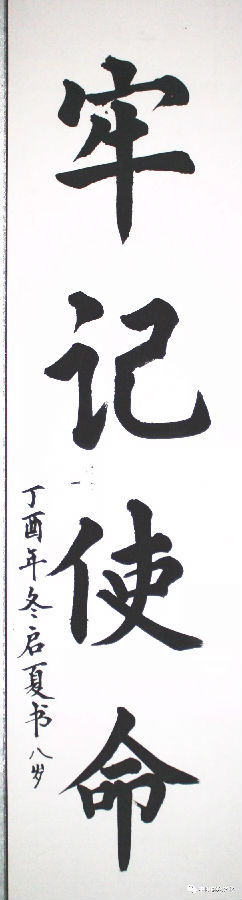 牢记使命
丁酉年冬启夏书 八岁